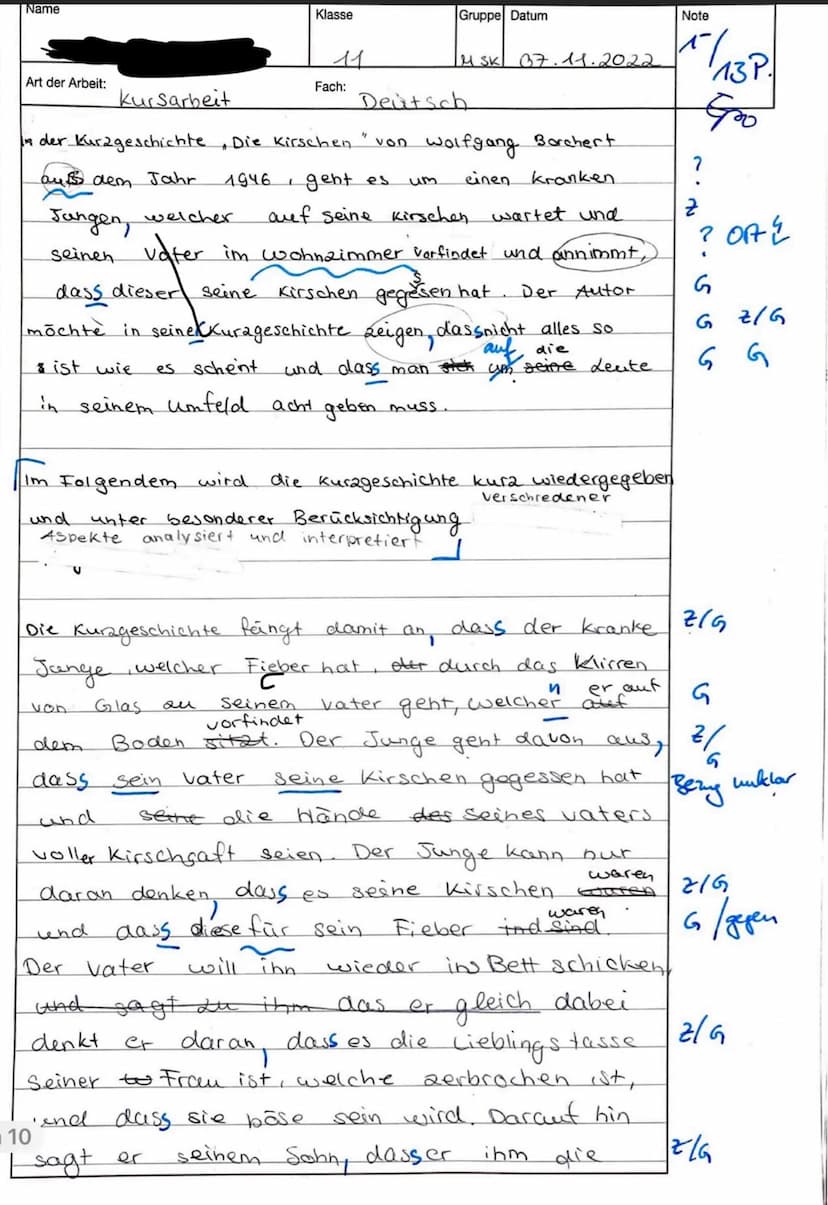 Name Klasse Gruppe Datum Note
11 MSK 07.11.2022 1-/13P.
Art der Arbeit: Kursarbeit Fach: Deutsch
In der Kurzgeschichte „Die Kirschen" von Wolfgang Borchert
aus dem Jahr 1946, geht es um einen kranken ?
Jungen, welcher auf seine Kirschen wartet und Z
seinen Vater im Wohnzimmer vorfindet und annimmt, ?
dass dieser seine Kirschen gegessen hat. Der Autor G
möchte in seiner Kurzgeschichte zeigen, dass nicht alles so G Z/G
auf die
ist wie es scheint und dass man sich um seine Leute G G
in seinem Umfeld acht geben muss.
Im Folgendem wird die Kurzgeschichte kurz wiedergegeben
verschiedener
und unter besonderer Berücksichtigung
Aspekte analysiert und interpretiert
Die Kurzgeschichte fängt damit an, dass der kranke Z/G
Junge, welcher Fieber hat, der durch das Klirren
n er auf
von Glas zu seinem Vater geht, welcher auf G
vorfindet
dem Boden sitzt. Der Junge geht davon aus, Z/G
dass sein Vater seine Kirschen gegessen hat Bezug unklar
und seine die Hände des seines Vaters
voller Kirschsaft seien. Der Junge kann nur
waren
daran denken, dass es seine Kirschen waren Z/G
waren
und dass diese für sein Fieber sind. G /gegen
Der Vater will ihn wieder ins Bett schicken,
und sagt zu ihm das er gleich dabei
denkt er daran, dass es die Lieblingstasse Z/G
seiner Frau ist, welche zerbrochen ist,
und dass sie böse sein wird. Darauf hin
10
sagt er seinem Sohn, dass er ihm die Z/G